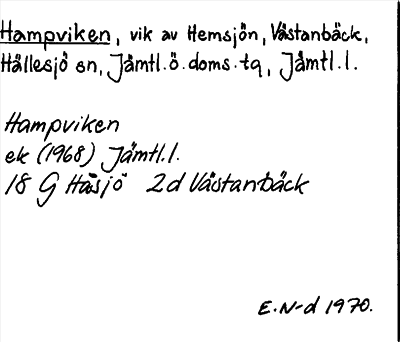 Hampviken, vik av Hemsjön, Västanbäck,
Hällesjö sn, Jämtl.ö.doms.tg, Jämtl.l.
Hampviken
ek (1968) Jämtl.l.
18 G Håsjö 2d Västanbäck
E.N-d 1970.